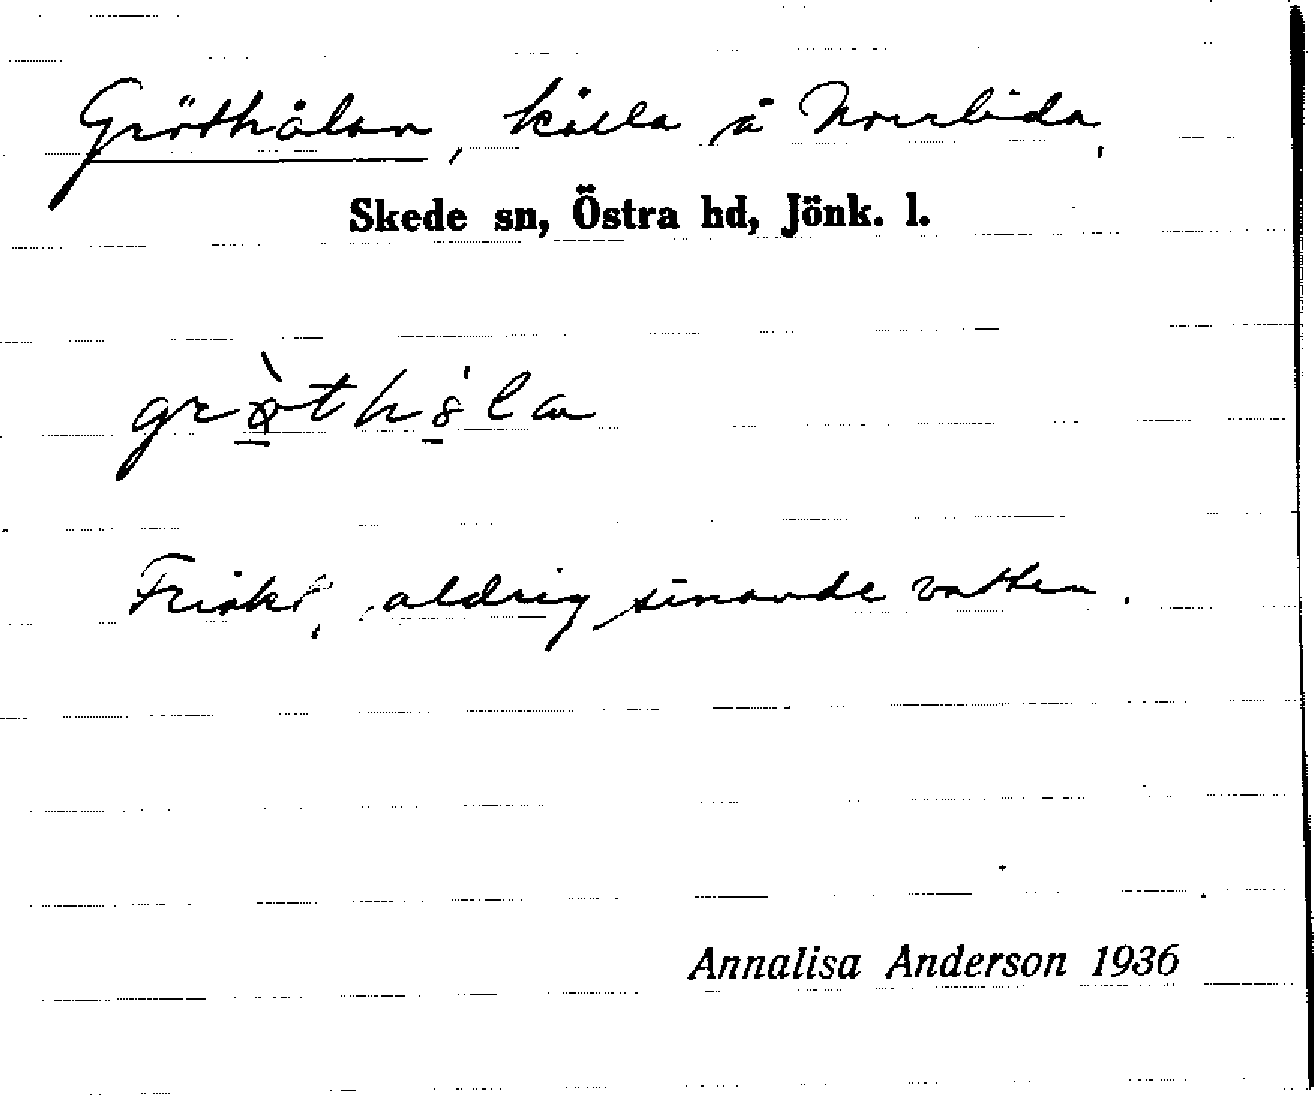 Gröthålan, källa å Norrlida,
Skede sn, Östra hd, Jönk. l.
Friskt, aldrig sinande vatten.
Annalisa Anderson 1936